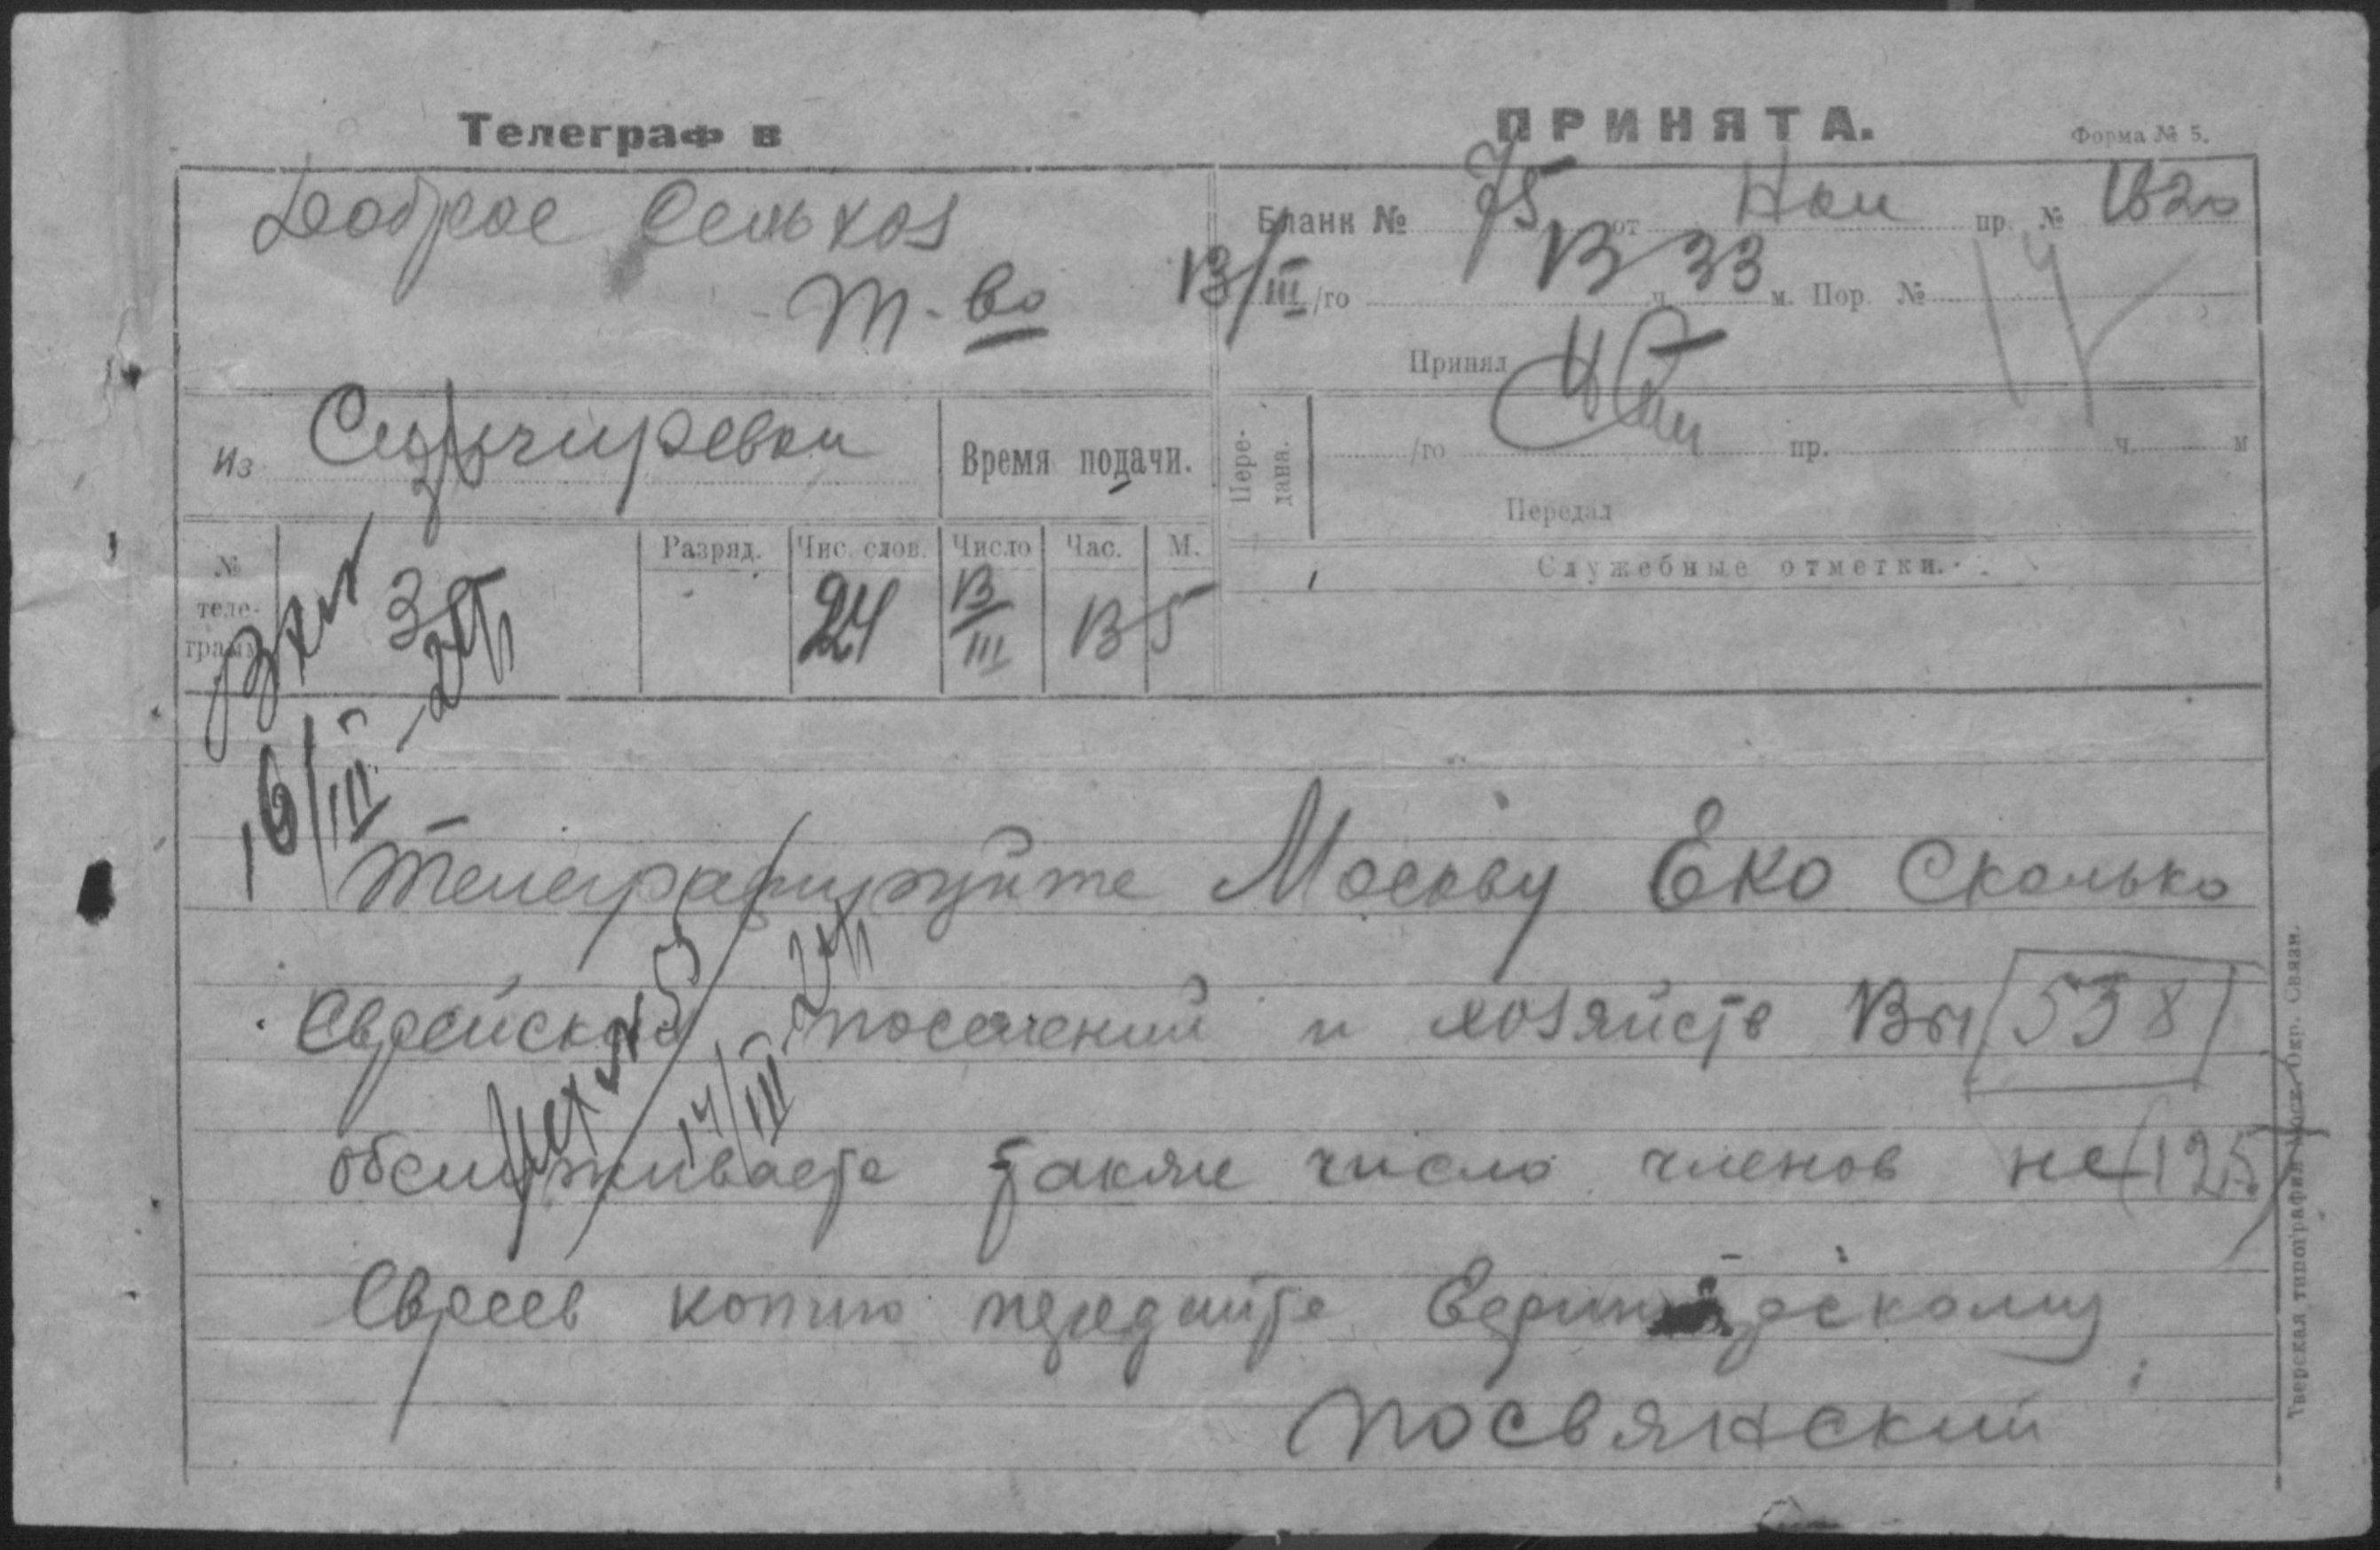 Телеграф в
ПРИНЯТА.
Форма № 5.
Доброе Сельхоз
т-во
Бланк № 75 от Ник пр. № 1820
13/III/го 13 ч. 33 м. Пор. №
14
Принял
Из Снигиревки
Время подачи.
Передана. /го пр. ч. м
Передал
№ телеграм. 3
Разряд.
Чис. слов. 24
Число 13/III
Час. 13
М. 5
Служебные отметки.
16/III
Телеграфируйте Москву Еко Сколько
Еврейских поселений и хозяйств Вы 538
Исх № 53
14/III
обслуживаете также число членов не 125
Евреев копию передайте
Посвянский
Тверская типография Моск. Окр. Связи.